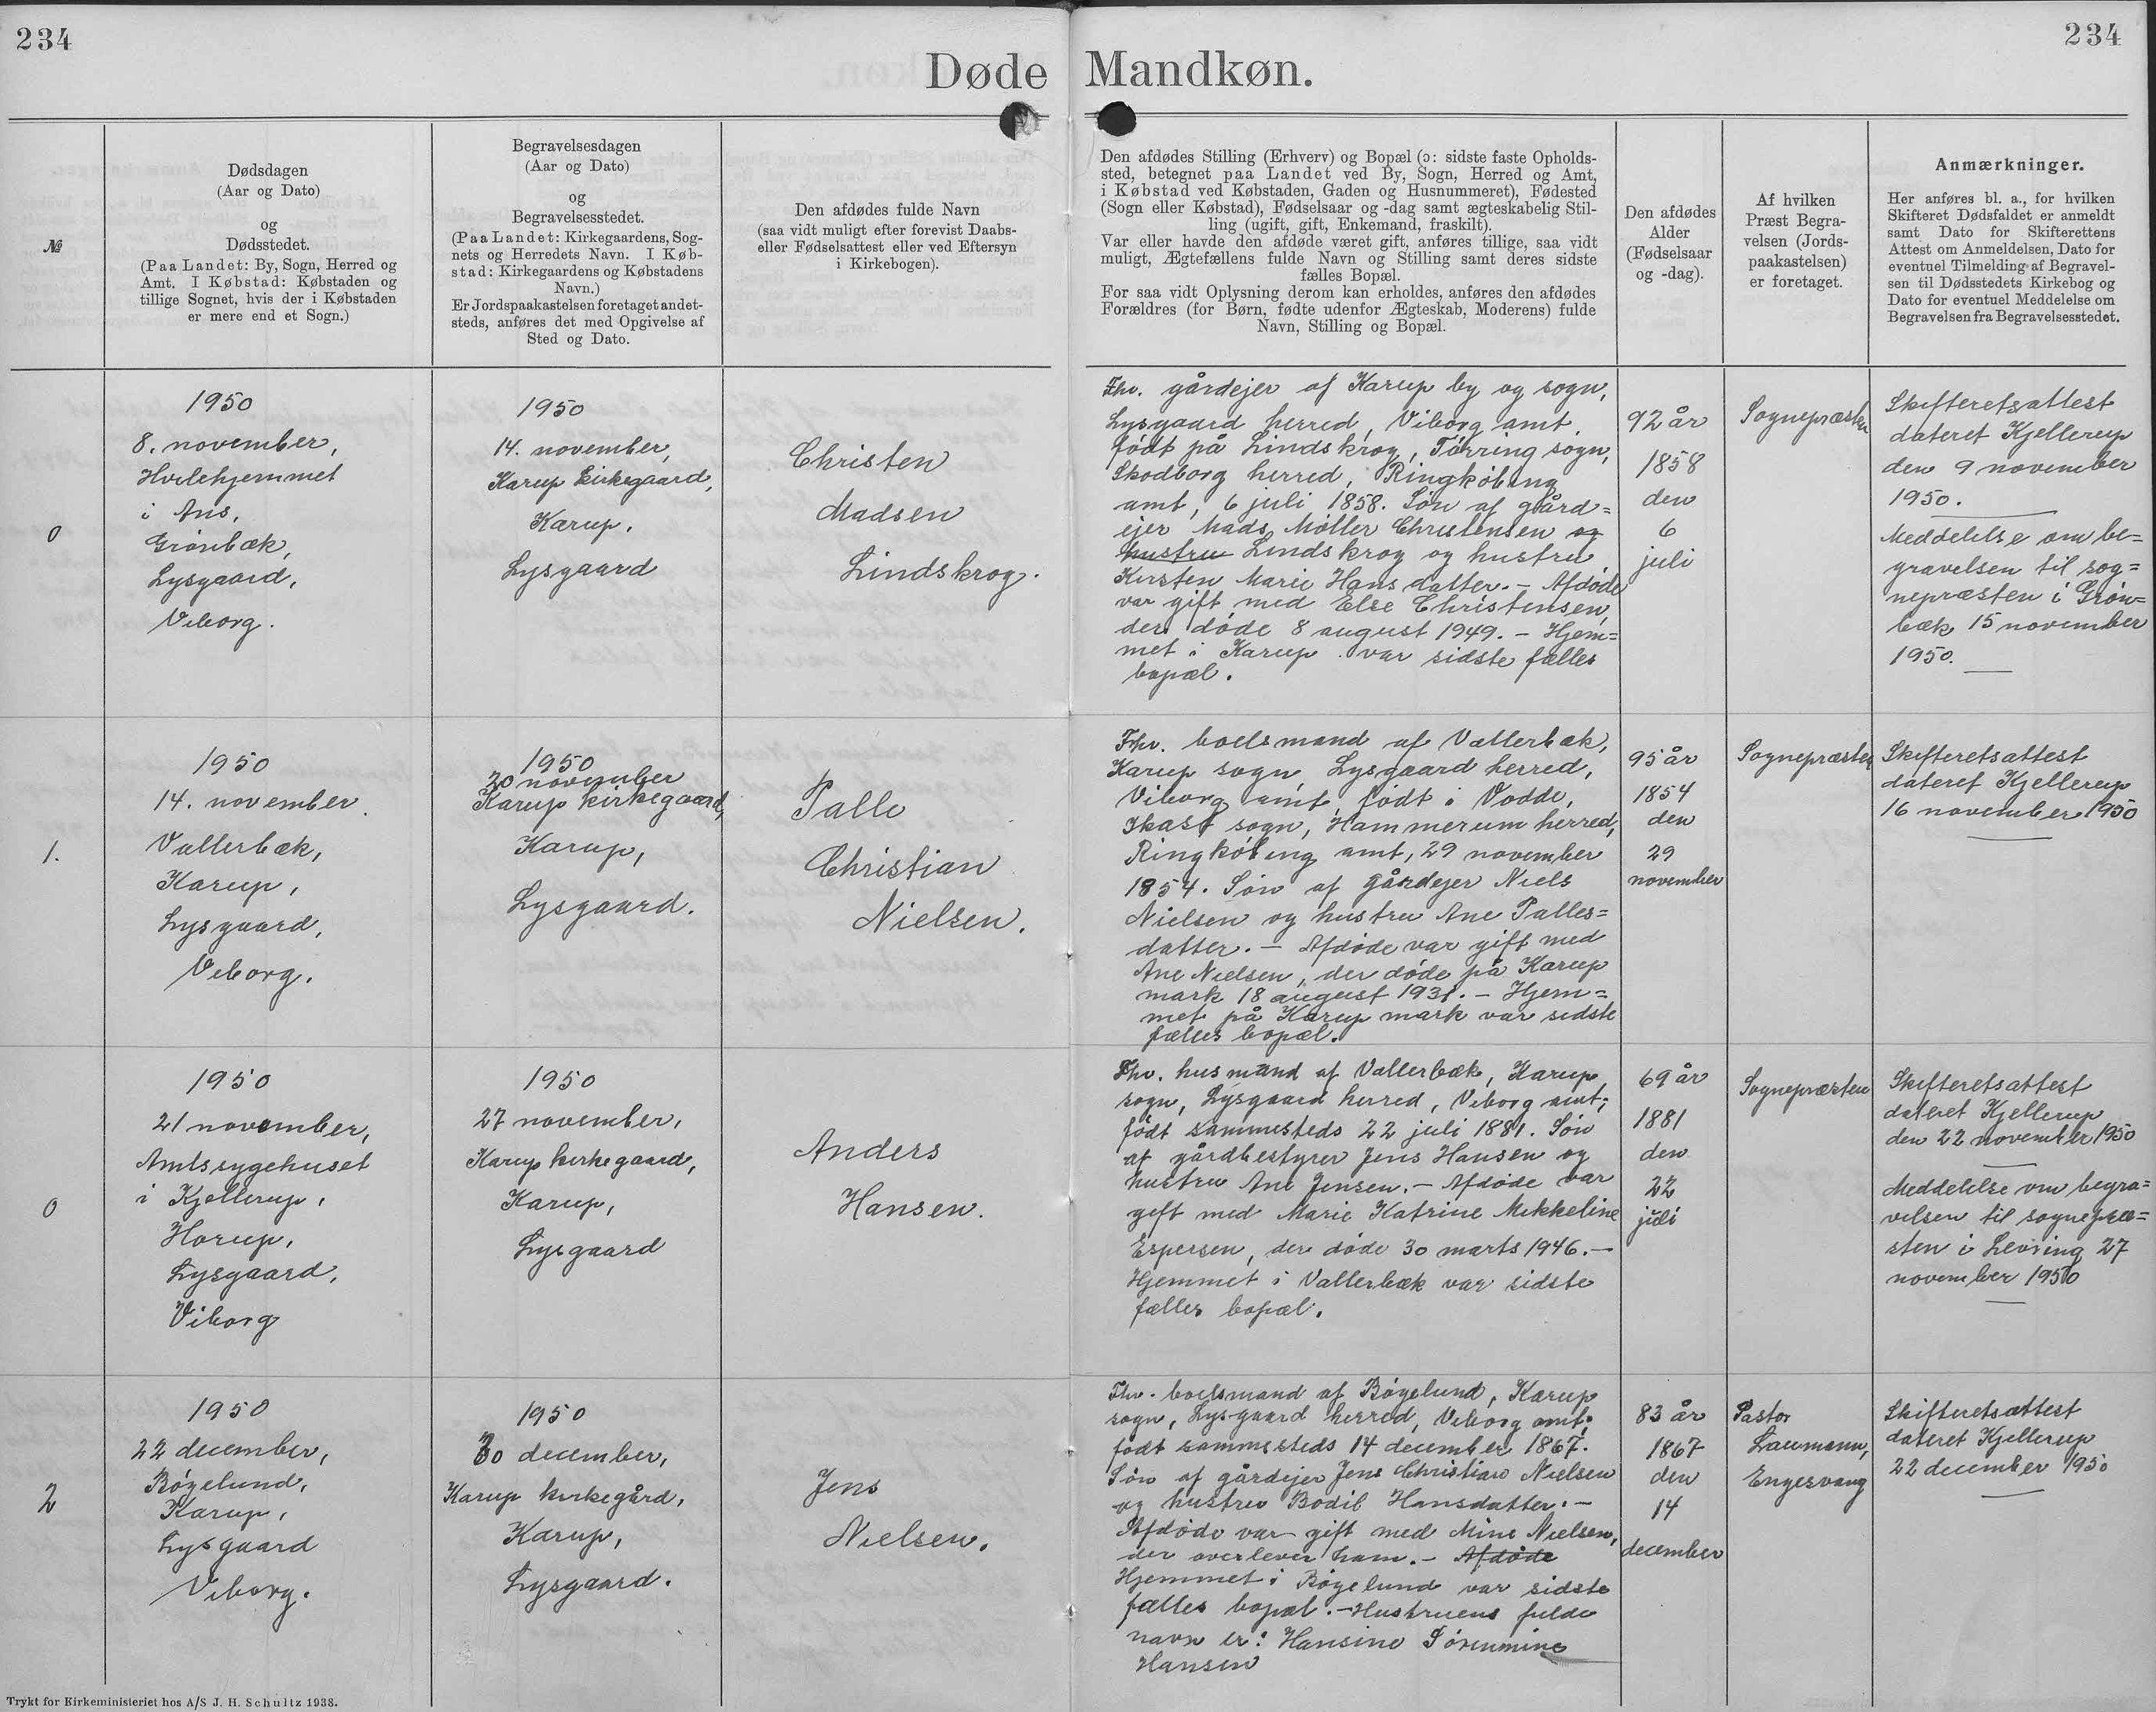 234
234
Døde Mandkøn.
№
Dødsdagen
(Aar og Dato)
og
Dødsstedet.
(Paa Landet: By, Sogn, Herred og
Amt. I Købstad: Købstaden og
tillige Sognet, hvis der i Købstaden
er mere end et Sogn.)
Begravelsesdagen
(Aar og Dato)
og
Begravelsesstedet.
(Paa Landet: Kirkegaardens, Sog-
nets og Herredets Navn. I Køb-
stad: Kirkegaardens og Købstadens
Navn.)
Er Jordspaakastelsen foretaget andet-
steds, anføres det med Opgivelse af
Sted og Dato.
Den afdødes fulde Navn
(saa vidt muligt efter forevist Daabs-
eller Fødselsattest eller ved Eftersyn
i Kirkebogen).
Den afdødes Stilling (Erhverv) og Bopæl (ɔ: sidste faste Opholds-
sted, betegnet paa Landet ved By, Sogn, Herred og Amt,
i Købstad ved Købstaden, Gaden og Husnummeret), Fødested
(Sogn eller Købstad), Fødselsaar og -dag samt ægteskabelig Stil-
ling (ugift, gift, Enkemand, fraskilt).
Var eller havde den afdøde været gift, anføres tillige, saa vidt
muligt, Ægtefællens fulde Navn og Stilling samt deres sidste
fælles Bopæl.
For saa vidt Oplysning derom kan erholdes, anføres den afdødes
Forældres (for Børn, fødte udenfor Ægteskab, Moderens) fulde
Navn, Stilling og Bopæl.
Den afdødes
Alder
(Fødselsaar
og -dag).
Af hvilken
Præst Begra-
velsen (Jords-
paakastelsen)
er foretaget.
Anmærkninger.
Her anføres bl. a., for hvilken
Skifteret Dødsfaldet er anmeldt
samt Dato for Skifterettens
Attest om Anmeldelsen, Dato for
eventuel Tilmelding af Begravel-
sen til Dødsstedets Kirkebog og
Dato for eventuel Meddelelse om
Begravelsen fra Begravelsesstedet.
0
1950
8. november,
Hvilehjemmet
i Ans,
Grønbæk,
Lysgaard,
Viborg.
1950
14. november,
Karup kirkegaard,
Karup,
Lysgaard
Christen
Madsen
Lindskrog.
Fhv. gårdejer af Karup by og sogn,
Lysgaard herred, Viborg amt,
født på Lindskrog, Tørring sogn,
Skodborg herred, Ringkøbing
amt, 6 juli 1858. Søn af gård=
ejer Mads Møller Christensen og
hustru Lindskrog og hustru
Kirsten Marie Hansdatter. – Afdøde
var gift med Else Christensen,
der døde 8 august 1949. – Hjem=
met i Karup var sidste fælles
bopæl.
92 år
1858
den
6
juli
Sognepræsten
Skifteretsattest
dateret Kjellerup
den 9 november
1950.
Meddelelse om be=
gravelsen til sog=
nepræsten i Grøn=
bæk 15 november
1950.
1.
1950
14. november.
Vallerbæk,
Karup,
Lysgaard,
Viborg.
1950
20 november
Karup kirkegaard,
Karup,
Lysgaard.
Palle
Christian
Nielsen.
Fhv. boelsmand af Vallerbæk,
Karup sogn, Lysgaard herred,
Viborg amt, født i Vodde,
Ikast sogn, Hammerum herred,
Ringkøbing amt, 29 november
1854. Søn af gårdejer Niels
Nielsen og hustru Ane Palles=
datter. – Afdøde var gift med
Ane Nielsen, der døde på Karup
mark 18 august 1931. – Hjem=
met på Karup mark var sidste
fælles bopæl.
95 år
1854
den
29
november
Sognepræsten
Skifteretsattest
dateret Kjellerup
16 november 1950
0
1950
21 november,
Amtssygehuset
i Kjellerup,
Hørup,
Lysgaard,
Viborg
1950
27 november,
Karup kirkegaard,
Karup,
Lysgaard
Anders
Hansen.
Fhv. husmand af Vallerbæk, Karup
sogn, Lysgaard herred, Viborg amt;
født sammesteds 22 juli 1881. Søn
af gårdbestyrer Jens Hansen og
hustru Ane Jensen. – Afdøde var
gift med Marie Katrine Mikkeline
Espersen, der døde 30 marts 1946. –
Hjemmet i Vallerbæk var sidste
fælles bopæl.
69 år
1881
den
22
juli
Sognepræsten
Skifteretsattest
dateret Kjellerup
den 22 november 1950
Meddelelse om begra=
velsen til sognepræ=
sten i Levring 27
november 1950
2
1950
22 december,
Bøgelund,
Karup,
Lysgaard
Viborg.
1950
30 december,
Karup kirkegård,
Karup,
Lysgaard.
Jens
Nielsen.
Fhv. boelsmand af Bøgelund, Karup
sogn, Lysgaard herred, Viborg amt;
født sammesteds 14 december 1867.
Søn af gårdejer Jens Christian Nielsen
og hustru Bodil Hansdatter. –
Afdøde var gift med Mine Nielsen,
der overlever ham. – Afdøde
Hjemmet i Bøgelund var sidste
fælles bopæl. – Hustruens fulde
navn er: Hansine Sørenmine
Hansen
83 år
1867
den
14
december
Pastor
Laumann,
Engesvang
Skifteretsattest
dateret Kjellerup
22 december 1950
Trykt for Kirkeministeriet hos A/S J. H. Schultz 1938.